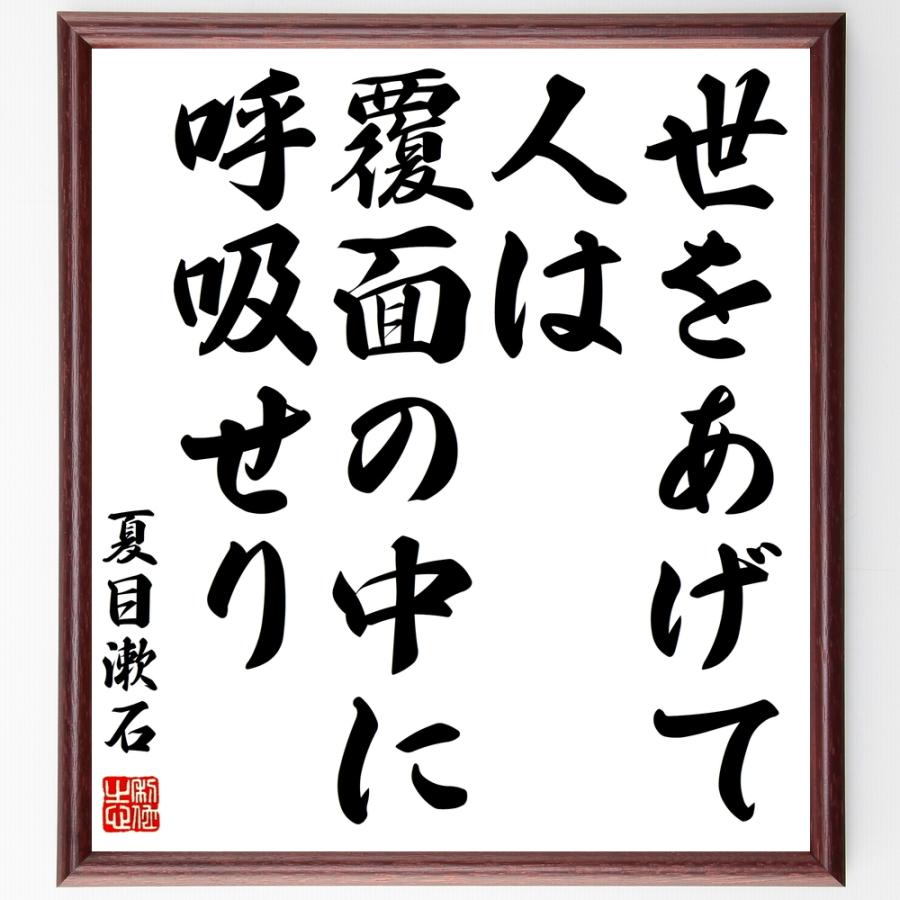 世をあげて
人は
覆面の中に
呼吸せり
夏目漱石